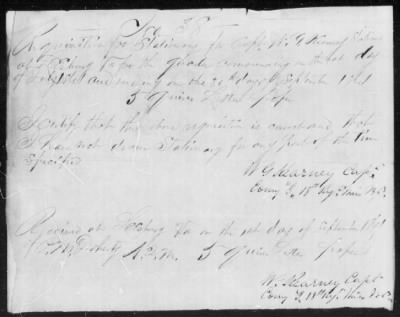 No 38
Requisition for Stationery for Capt W. G. Kearney Stationed
at Leesburg Va for the quarter commencing on the 1st day
of and ending on the 30th day of September 1861
5 Quires Letter Paper
I certify that the above requisition is correct and that
I have not drawn Stationery for any part of the time
specified
W G Kearney Capt
Comy 18th Regt Miss Vol.
Received at Leesburg Va on the 1st day of September 1861
of A.Q.M. 5 Quires Letter Paper
W. Kearney Capt
Comy 18th Regt Miss Vol.